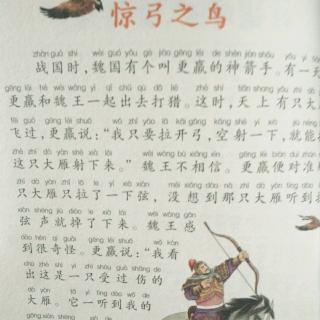 惊弓之鸟
zhàn guó shí wèi guó yǒu gè jiào gēng léi de shén jiàn shǒu yǒu yì
战国时，魏国有个叫更羸的神箭手。有一
gēng léi hé wèi wáng yì qǐ chū qù dǎ liè zhè shí tiān shàng yǒu zhī dà
更羸和魏王一起出去打猎。这时，天上有只大
fēi guò gēng léi shuō wǒ zhǐ yào lā kāi gōng kōng shè yí xià jiù néng
飞过，更羸说：“我只要拉开弓，空射一下，就能
zhè zhī dà yàn shè xià lái wèi wáng bù xiāng xìn gēng léi biàn duì zhǔn
这只大雁射下来。”魏王不相信。更羸便对准
zhī dà yàn zhǐ lā le yí xià xián méi xiǎng dào nà zhī dà yàn tīng dào
只大雁只拉了一下弦，没想到那只大雁听到
xián shēng jiù diào le xià lái wèi wáng gǎn
弦声就掉了下来。魏王感
dào hěn qí guài gēng léi shuō wǒ kàn
到很奇怪。更羸说：“我看
chū zhè shì yì zhī shòu guò shāng de
出这是一只受过伤的
dà yàn tā yì tīng dào wǒ de
大雁。它一听到我的
gōng xián shēng